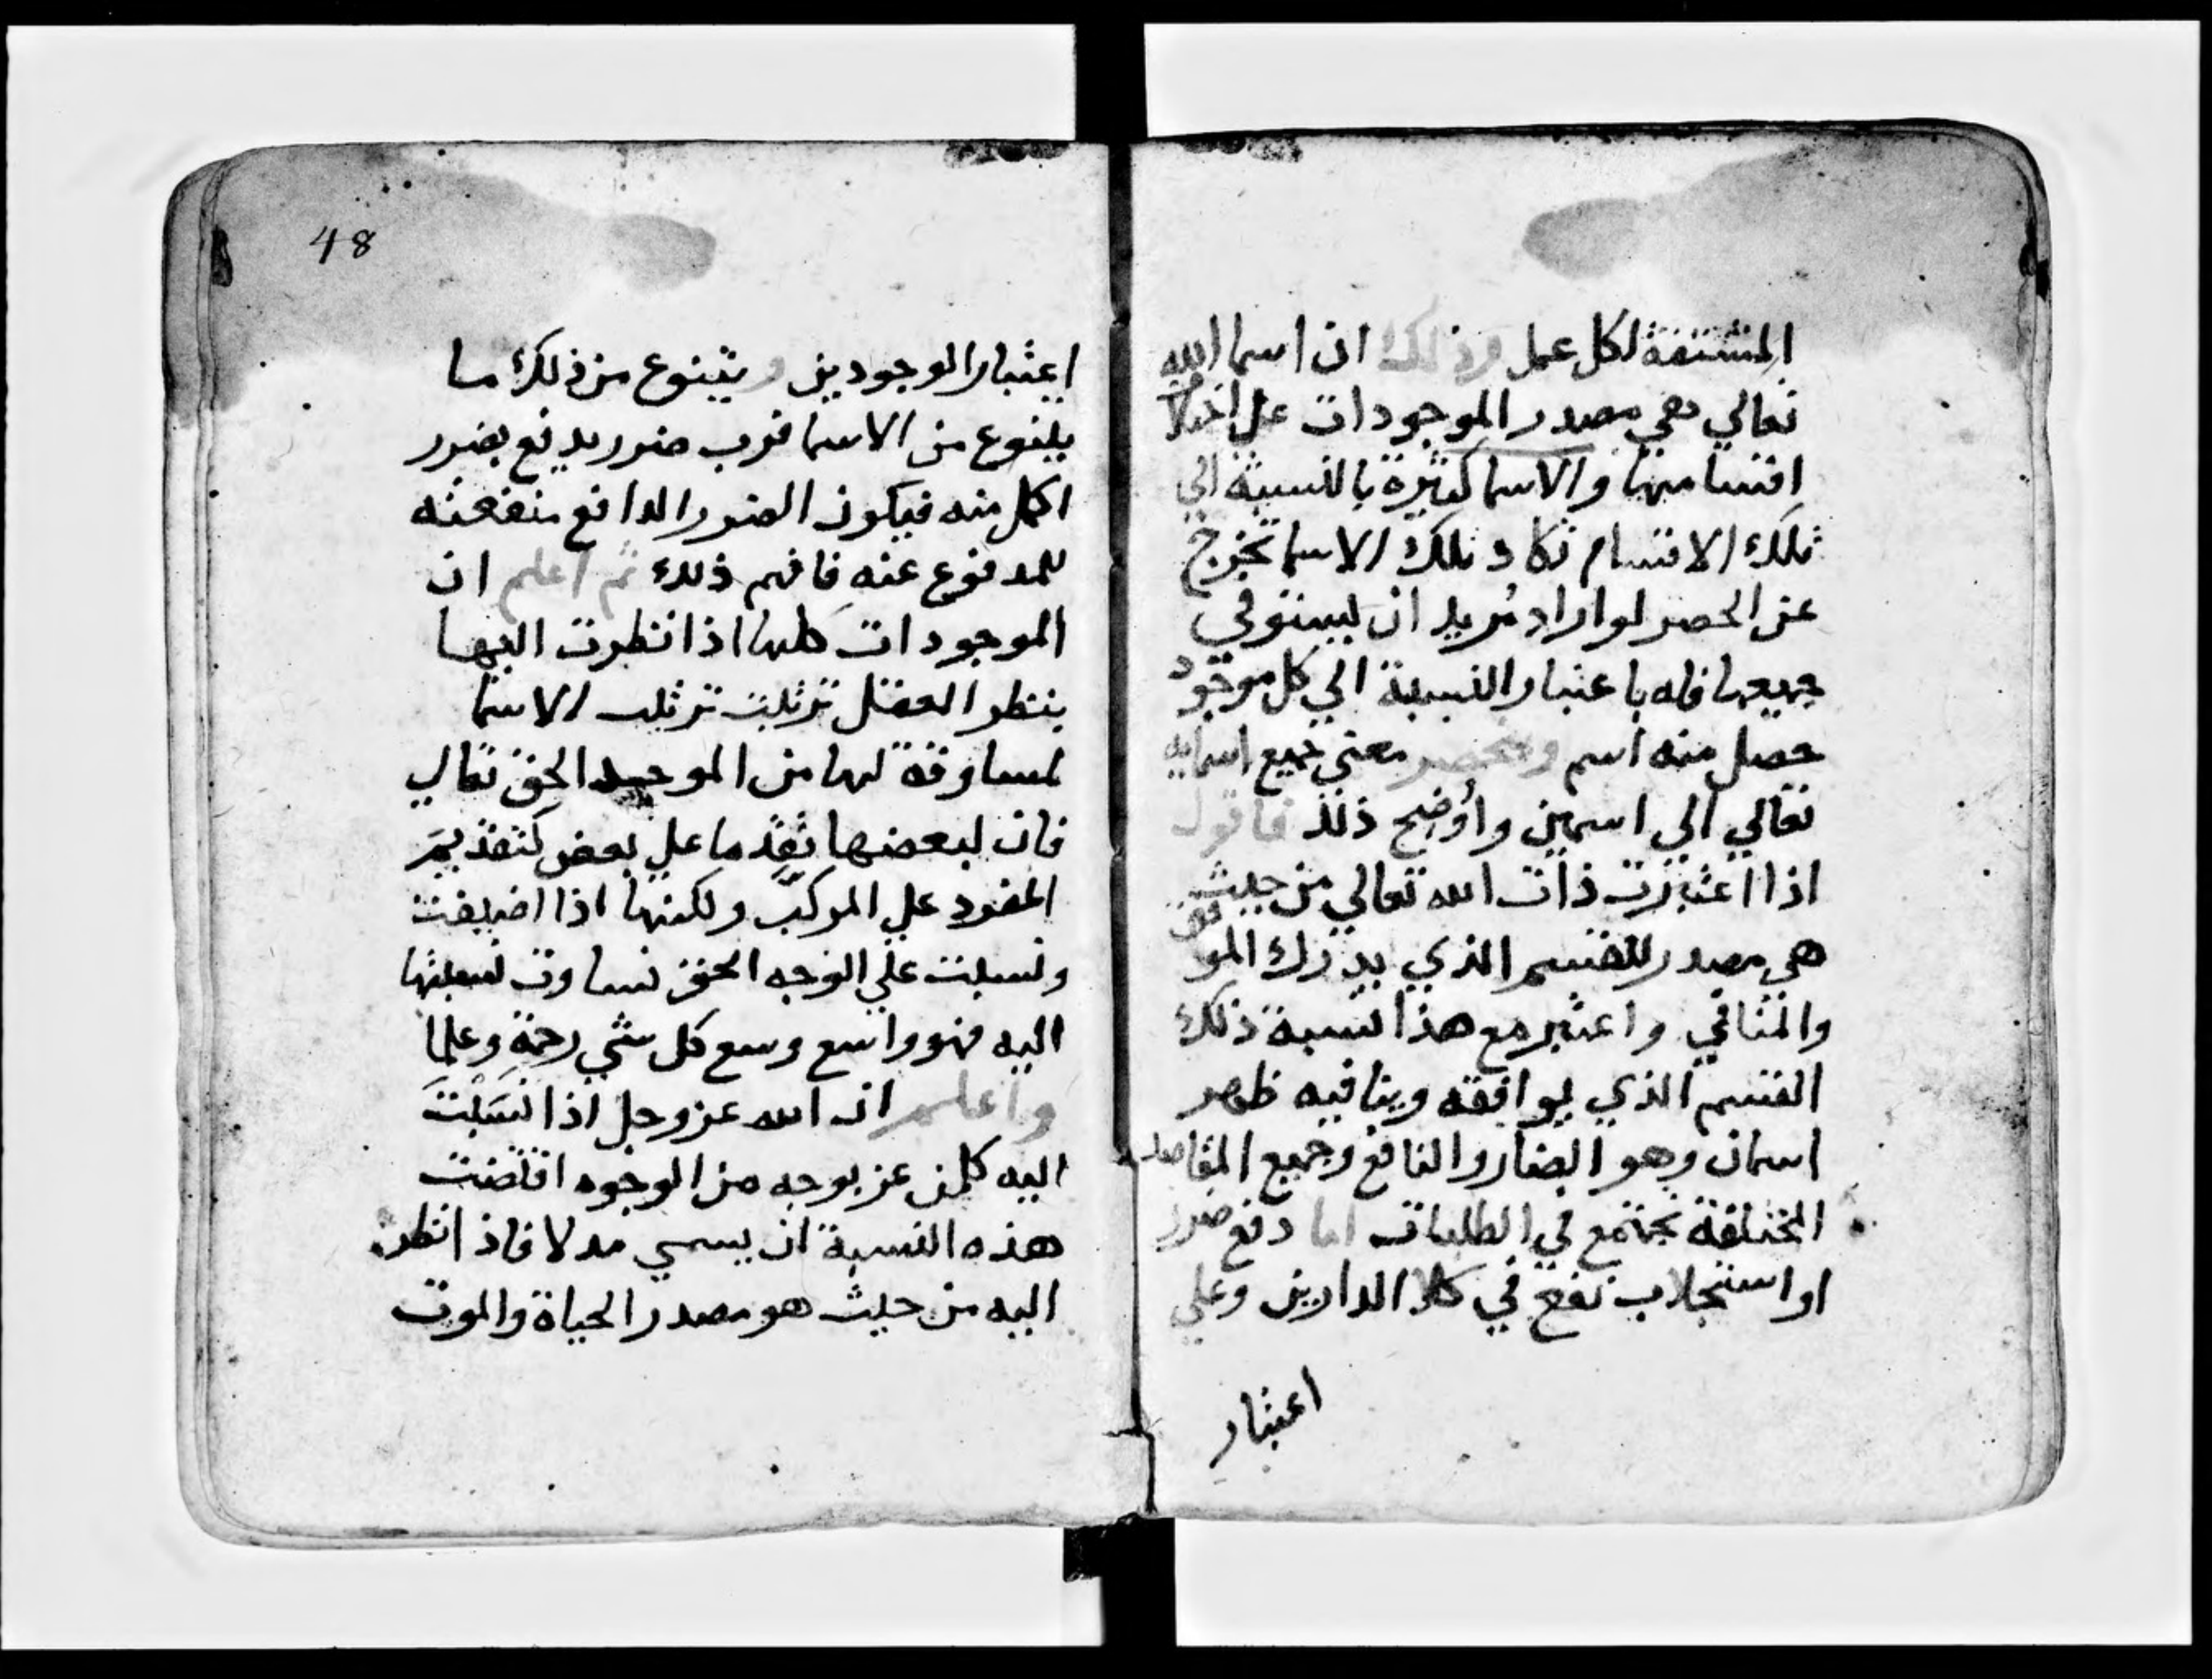 المشتقة لكل عمل وذلك ان اسما الله
تعالي هي مصدر الموجودات علي اختلاف
اقسامها والاسما كثيرة بالنسبة الي
تلك الاقسام تكاد تلك الاسما تخرج
عن الحصر لو اراد مريد ان يستوفي
جميعها فله باعتبار النسبة الي كل موجود
حصل منه اسم وينحصر معني جميع اسمايه
تعالي الي اسمين واوضح ذلك فاقول
اذا اعتبرت ذات الله تعالي من حيث
هي مصدر للقسم الذي يدرك الموافق
والمنافي واعتبر مع هذا نسبة ذلك
القسم الذي يوافقه وينافيه ظهر
اسمان وهو الضار والنافع وجميع المقاصد
المختلفة تجتمع في الطلبات اما دفع ضرر
او استجلاب نفع في كلا الدارين وعلي
اعتبار
48
اعتبار الوجودين ويتنوع من ذلك ما
يتنوع من الاسما فرب ضرر يدفع بضرر
اكمل منه فيكون الضرر الدافع منفعته
للمدفوع عنه فافهم ذلك ثم اعلم ان
الموجودات كلها اذا نظرت اليها
بنظر العقل ترتبت ترتب الاسما
لمساوقة لها من الموجد الحق تعالي
فان لبعضها تقدما علي بعض كتقديم
المفرد علي المركب ولكنها اذا اضيفت
ونسبت علي الوجه الحق تساوت نسبتها
اليه فهو واسع وسع كل شي رحمة وعلما
واعلم ان الله عز وجل اذا نسبت
اليه كل من عز بوجه من الوجوه اقتضت
هذه النسبة ان يسمي مدلا فاذا نظرت
اليه من حيث هو مصدر الحياة والموت